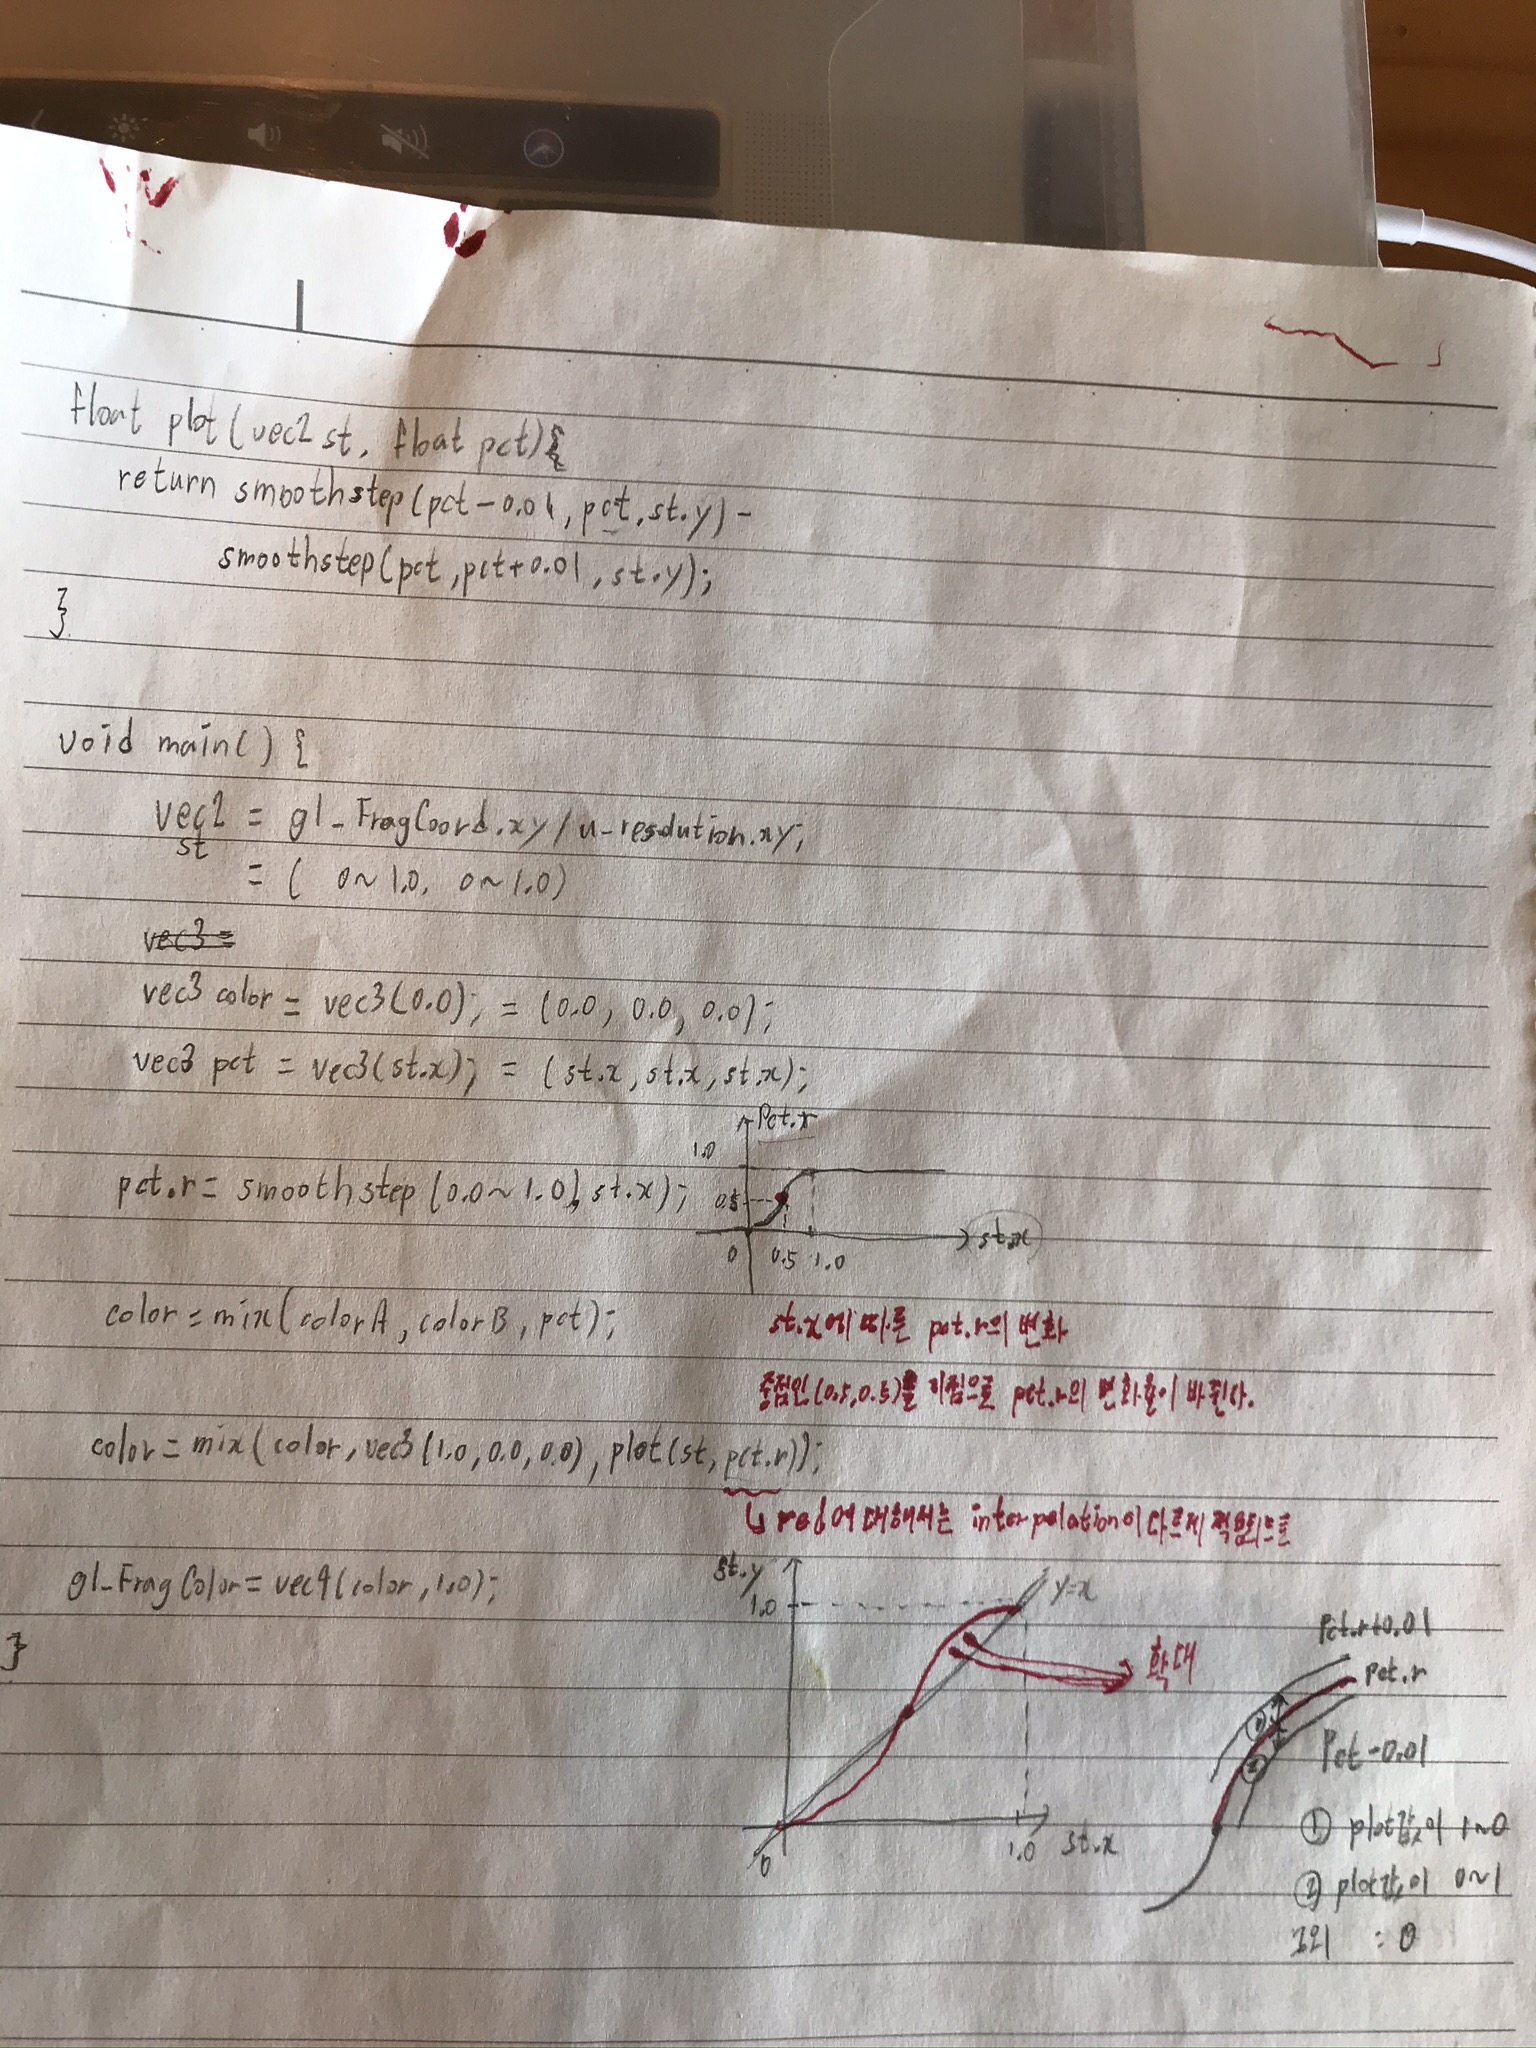 float plot(vec2 st, float pct){
return smoothstep(pct-0.01, pct, st.y) -
smoothstep(pct, pct+0.01, st.y);
}
void main() {
vec2 = gl_FragCoord.xy/u_resolution.xy;
st
= ( 0~1.0, 0~1.0)
vec3=
vec3 color = vec3(0.0); = (0.0, 0.0, 0.0);
vec3 pct = vec3(st.x); = (st.x, st.x, st.x);
pct.r
1.0
pct.r = smoothstep(0.0~1.0, st.x);
0.5
st.x
0 0.5 1.0
color = mix(colorA, colorB, pct);
st.x에 따른 pct.r의 변화
중점인 (0.5, 0.5)를 기점으로 pct.r의 변화율이 바뀐다.
color = mix(color, vec3(1.0, 0.0, 0.0), plot(st, pct.r));
↳ red에 대해서는 interpolation이 다르게 적용되므로
gl_FragColor = vec4(color, 1.0);
}
st.y
1.0
y=x
확대
0
1.0 st.x
pct.r+0.01
pct.r
pct-0.01
①
②
① plot값이 1~0
② plot값이 0~1
그외 : 0